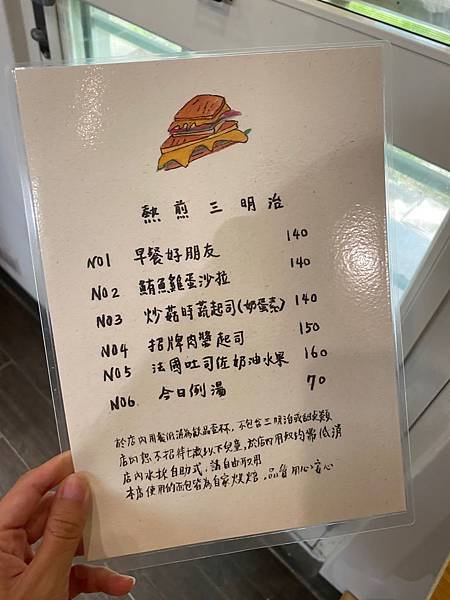 熱煎三明治
NO1 早餐好朋友 140
NO2 鮪魚雞蛋沙拉 140
NO3 炒菇時蔬起司(奶蛋素) 140
NO4 招牌肉醬起司 150
NO5 法國吐司佐奶油水果 160
NO6. 今日例湯 70
於店內用餐低消為飲品壹杯,不包含三明治或甜點類
店內恕不招待七歲以下兒童,於店內用餐均需低消
店內水杯自助式,請自由取用
本店使用的麵包皆為自家烘焙,品質用心安心